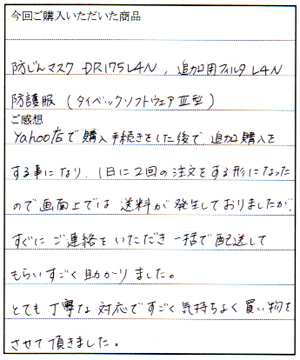 今回ご購入いただいた商品
防じんマスク DR175L4N, 追加用フィルタ L4N
防護服 (タイベックソフトウェアⅢ型)
ご感想
Yahoo店で購入手続きをした後で追加購入を
する事になり、1日に2回の注文をする形になった
ので画面上では送料が発生しておりましたが、
すぐにご連絡をいただき一括で配送して
もらいすごく助かりました。
とても丁寧な対応ですごく気持ちよく買い物を
させて頂きました。